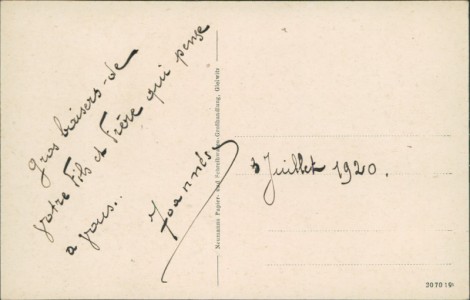 Gros baisers de
votre Fils et Frère qui pense
a vous..
Joannès
3 Juillet 1920.
Neumanns Papier- und Schreibwaren-Großhandlung, Gleiwitz